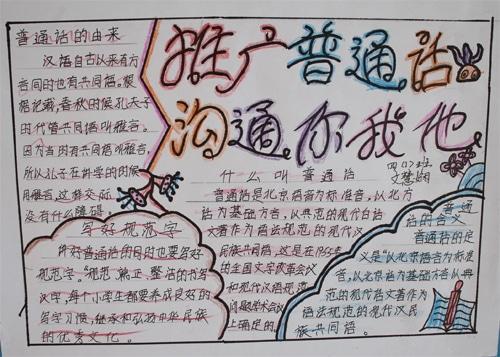 推广普通话
沟通你我他
普通话的由来
汉语自古以来有方
言同时也有共同语。根
据记载,春秋时候孔夫子
的时代管共同语叫雅言。
因为当时有共同语叫雅言,
所以孔子在讲学的时候
用雅言,这样交际
没有什么障碍!
写好规范字
许好普通话的同时也要写好
规范字。"规范、端正、整洁的书写
汉字,每个小学生都要养成良好的
写字习惯,继承和弘扬中华民族
的优秀文化。
什么叫普通话
普通话是北京语音为标准音,以北方
话为基础方言,以典范的现代白话
文著作为语法规范的现代汉
民族共同语,这是在1955年
的全国文字改革会议
和现代汉语规范
问题学术会议
上确定的。
普通
话的含义
普通话的定
义是"以北京语音为标准
音,以北京话为基础方言以典
范的现代语文著作为
语法规范的现代汉民
族共同语。